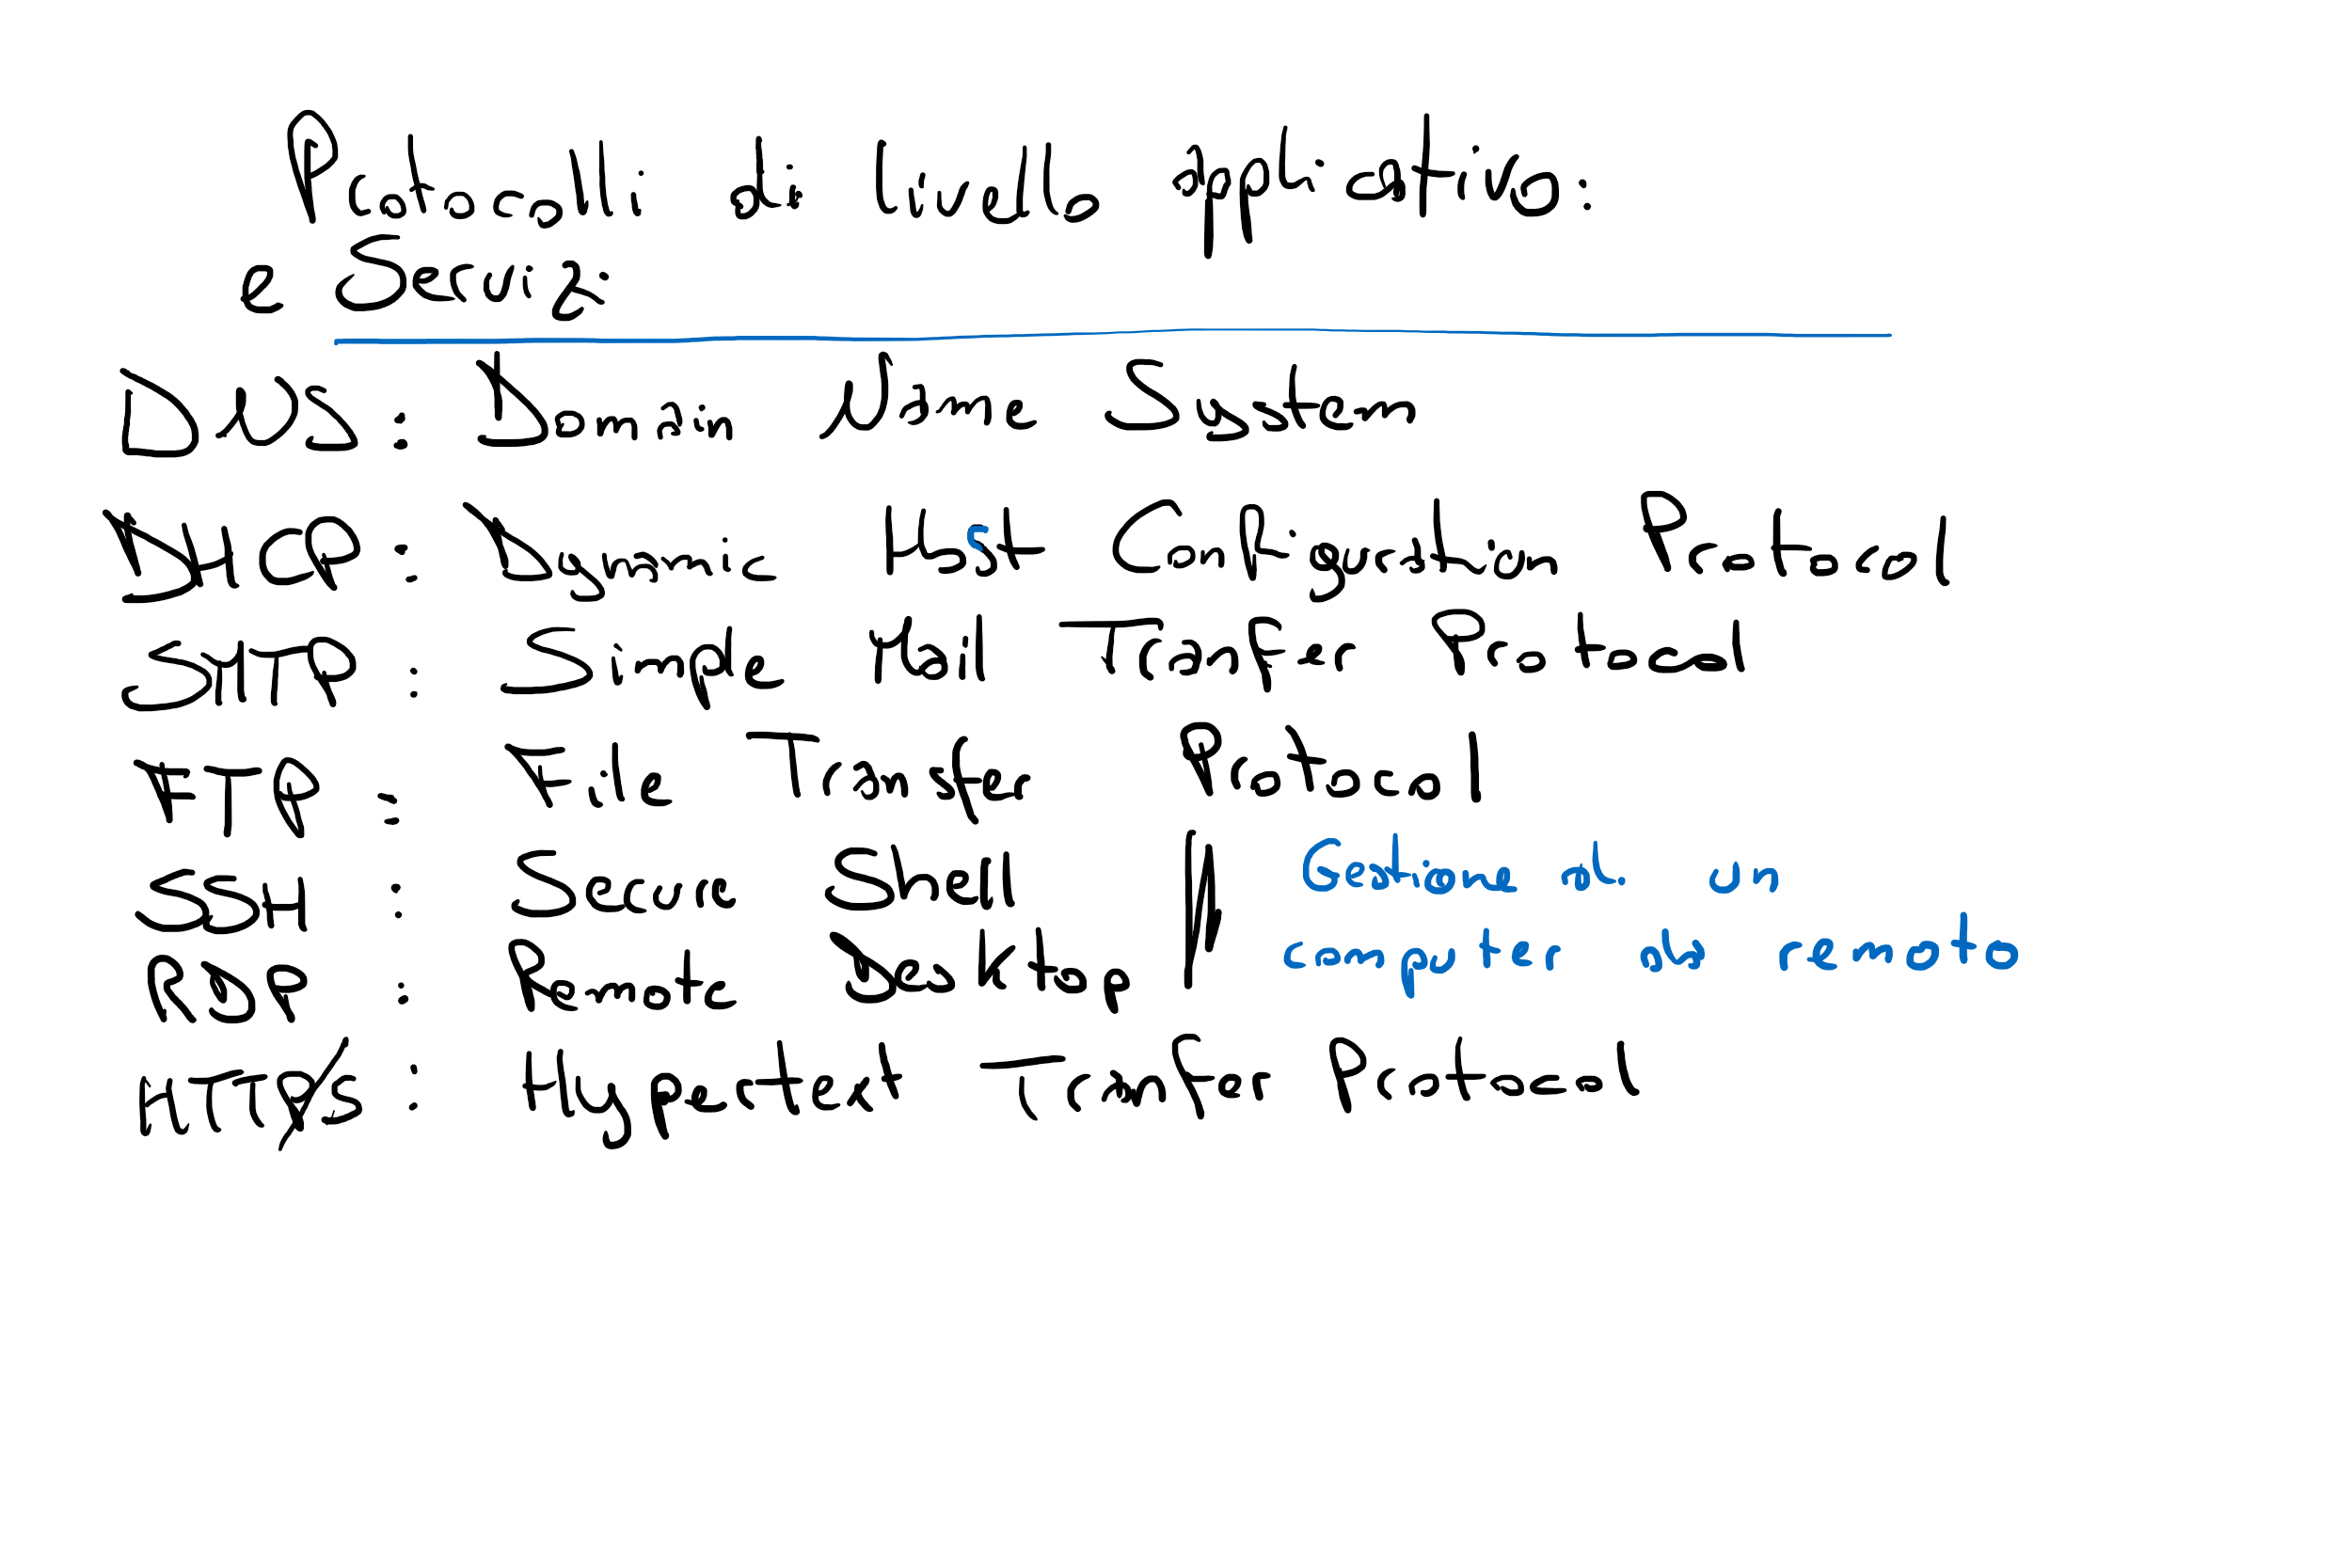 Protocolli di livello applicativo:
e Servizi
DNS: Domain Name System
DHCP: Dynamic Host Configuration Protocol
SMTP: Simple Mail Transfer Protocol
FTP: File Transfer Protocol
SSH: Secure Shell Gestione di un
computer da remoto
RDP: Remote Desktop
HTTP/s: Hypertext Transfer Protocol